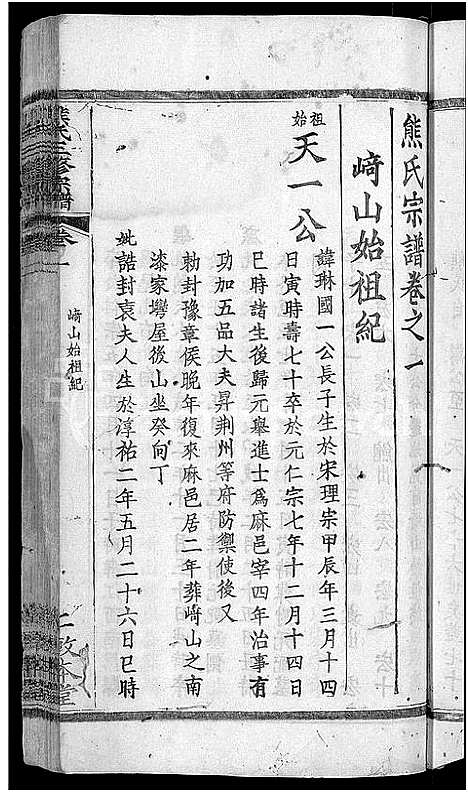 熊氏宗譜卷之一
﨑山始祖紀
始祖
天一公
諱琳國一公長子生於宋理宗甲辰年三月十四
日寅時壽七十卒於元仁宗七年十二月十四日
巳時諸生後歸元舉進士爲麻邑宰四年治事有
功加五品大夫昇荆州等府防禦使後又
勅封豫章侯晚年復來麻邑居二年葬﨑山之南
漆家塆屋後山坐癸向丁
妣誥封袁夫人生於淳祐二年五月二十六日巳時
熊氏三修宗譜
卷一
﨑山始祖紀
一敦本堂